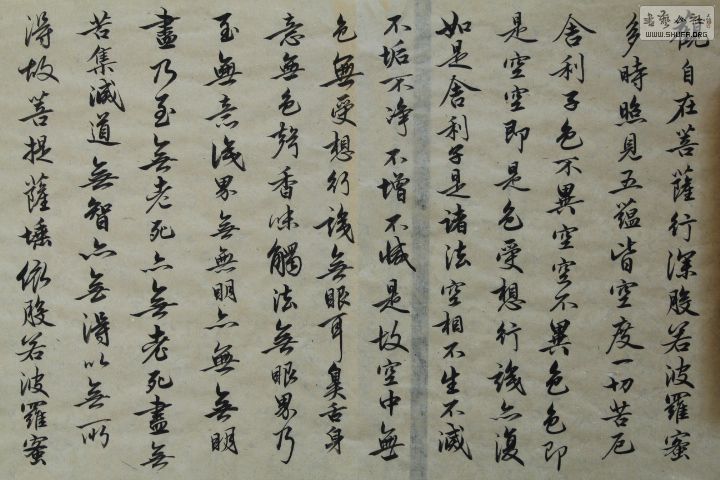 觀自在菩薩行深般若波羅蜜
多時照見五蘊皆空度一切苦厄
舍利子色不異空空不異色色即
是空空即是色受想行識亦復
如是舍利子是諸法空相不生不滅
不垢不净不增不減是故空中無
色無受想行識無眼耳鼻舌身
意無色聲香味觸法無眼界乃
至無意識界無無明亦無無明
盡乃至無老死亦無老死盡無
苦集滅道無智亦無得以無所
得故菩提薩埵依般若波羅蜜
WWW.SHUFA.ORG